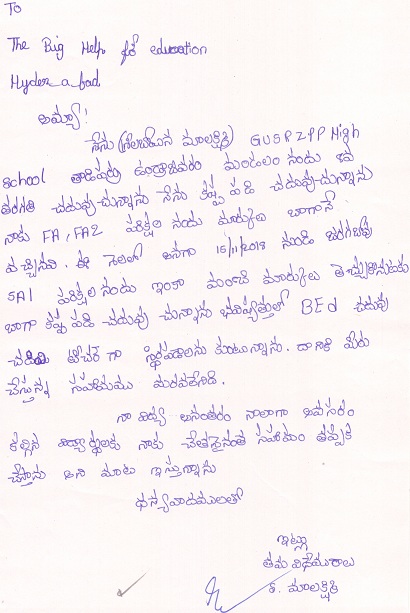 To
The Big Help for education
Hyderabad
అమ్మా!
నేను (గొలుబోయిన మాలక్ష్మి) GUSR ZPP High
School తాడిపర్రు ఉండ్రాజవరం మండలం నందు 8వ
తరగతి చదువు-చున్నాను నేను కష్ట పడి చదువు-చున్నాను
నాకు FA1, FA2 పరీక్షల నందు మార్కులు బాగానే
వచ్చినవి. ఈ నెలలో అనగా 15/11/2018 నుండి జరగబోవు
SA1 పరీక్షల నందు ఇంకా మంచి మార్కులు తెచ్చుకొనుటకు
బాగా కష్ట పడి చదువు చున్నాను భవిష్యత్తులో BEd చదువు
చదివి టీచర్ గా స్థిరపడాలను కుంటున్నాను. దానికి మీరు
చేస్తున్న సహాయము మరువలేనిది.
నా విద్య అనంతరం నాలాగా అవసరం
కల్గిన విద్యార్థులకు నాకు చేతనైనంత సహాయం తప్పక
చేస్తాను అని మాట ఇస్తున్నాను
ధన్యవాదములతో
ఇట్లు
తమ విధేయురాలు
గొ. మాలక్ష్మి